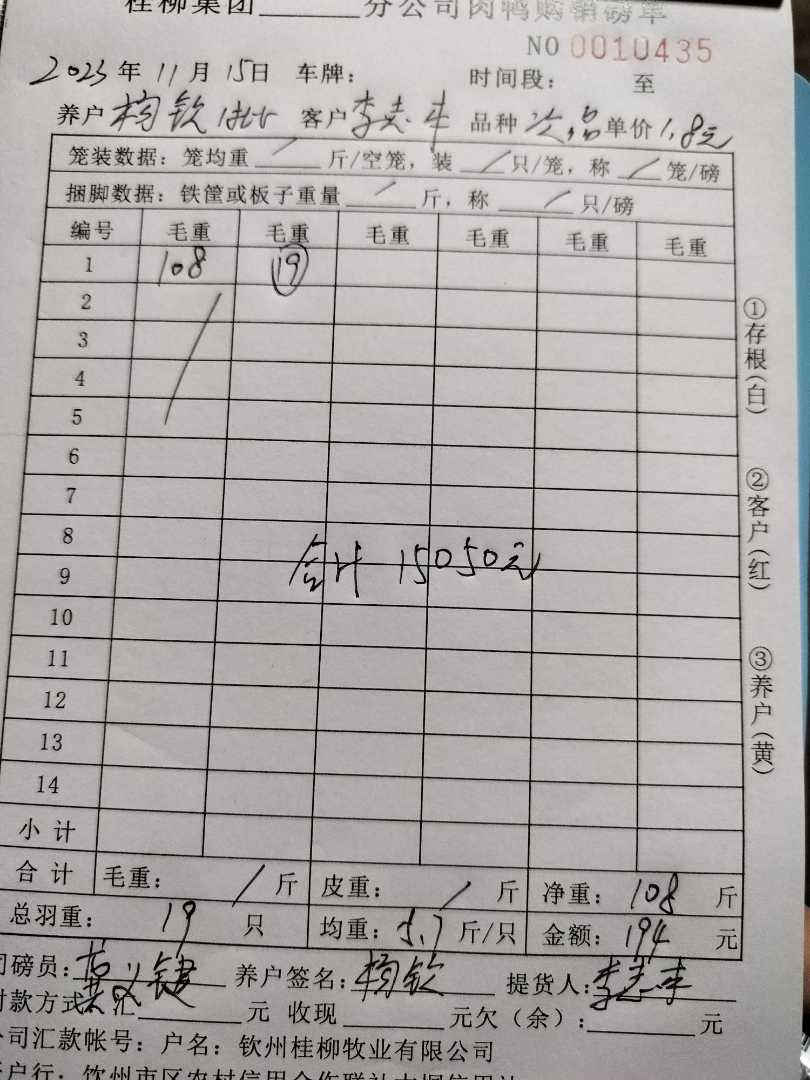 桂柳集团______分公司肉鸭购销磅单
NO 0010435
2023年 11月 15日 车牌： 时间段： 至
养户 客户 李志丰 品种 次品 单价 1.8元
笼装数据：笼均重 / 斤/空笼，装 / 只/笼，称 / 笼/磅
捆脚数据：铁筐或板子重量 / 斤，称 / 只/磅
编号 毛重 毛重 毛重 毛重 毛重 毛重
1 108 19
2
3
4
5
6
7
8
合计 15050元
9
10
11
12
13
14
小计
合计 毛重： / 斤 皮重： / 斤 净重： 108 斤
总羽重： 19 只 均重： 5.7 斤/只 金额： 194 元
司磅员： 养户签名： 提货人：李志丰
付款方式：汇______元 收现______元欠（余）：______元
公司汇款帐号：户名：钦州桂柳牧业有限公司
开户行：钦州市区农村信用合作联社
①存根（白）
②客户（红）
③养户（黄）